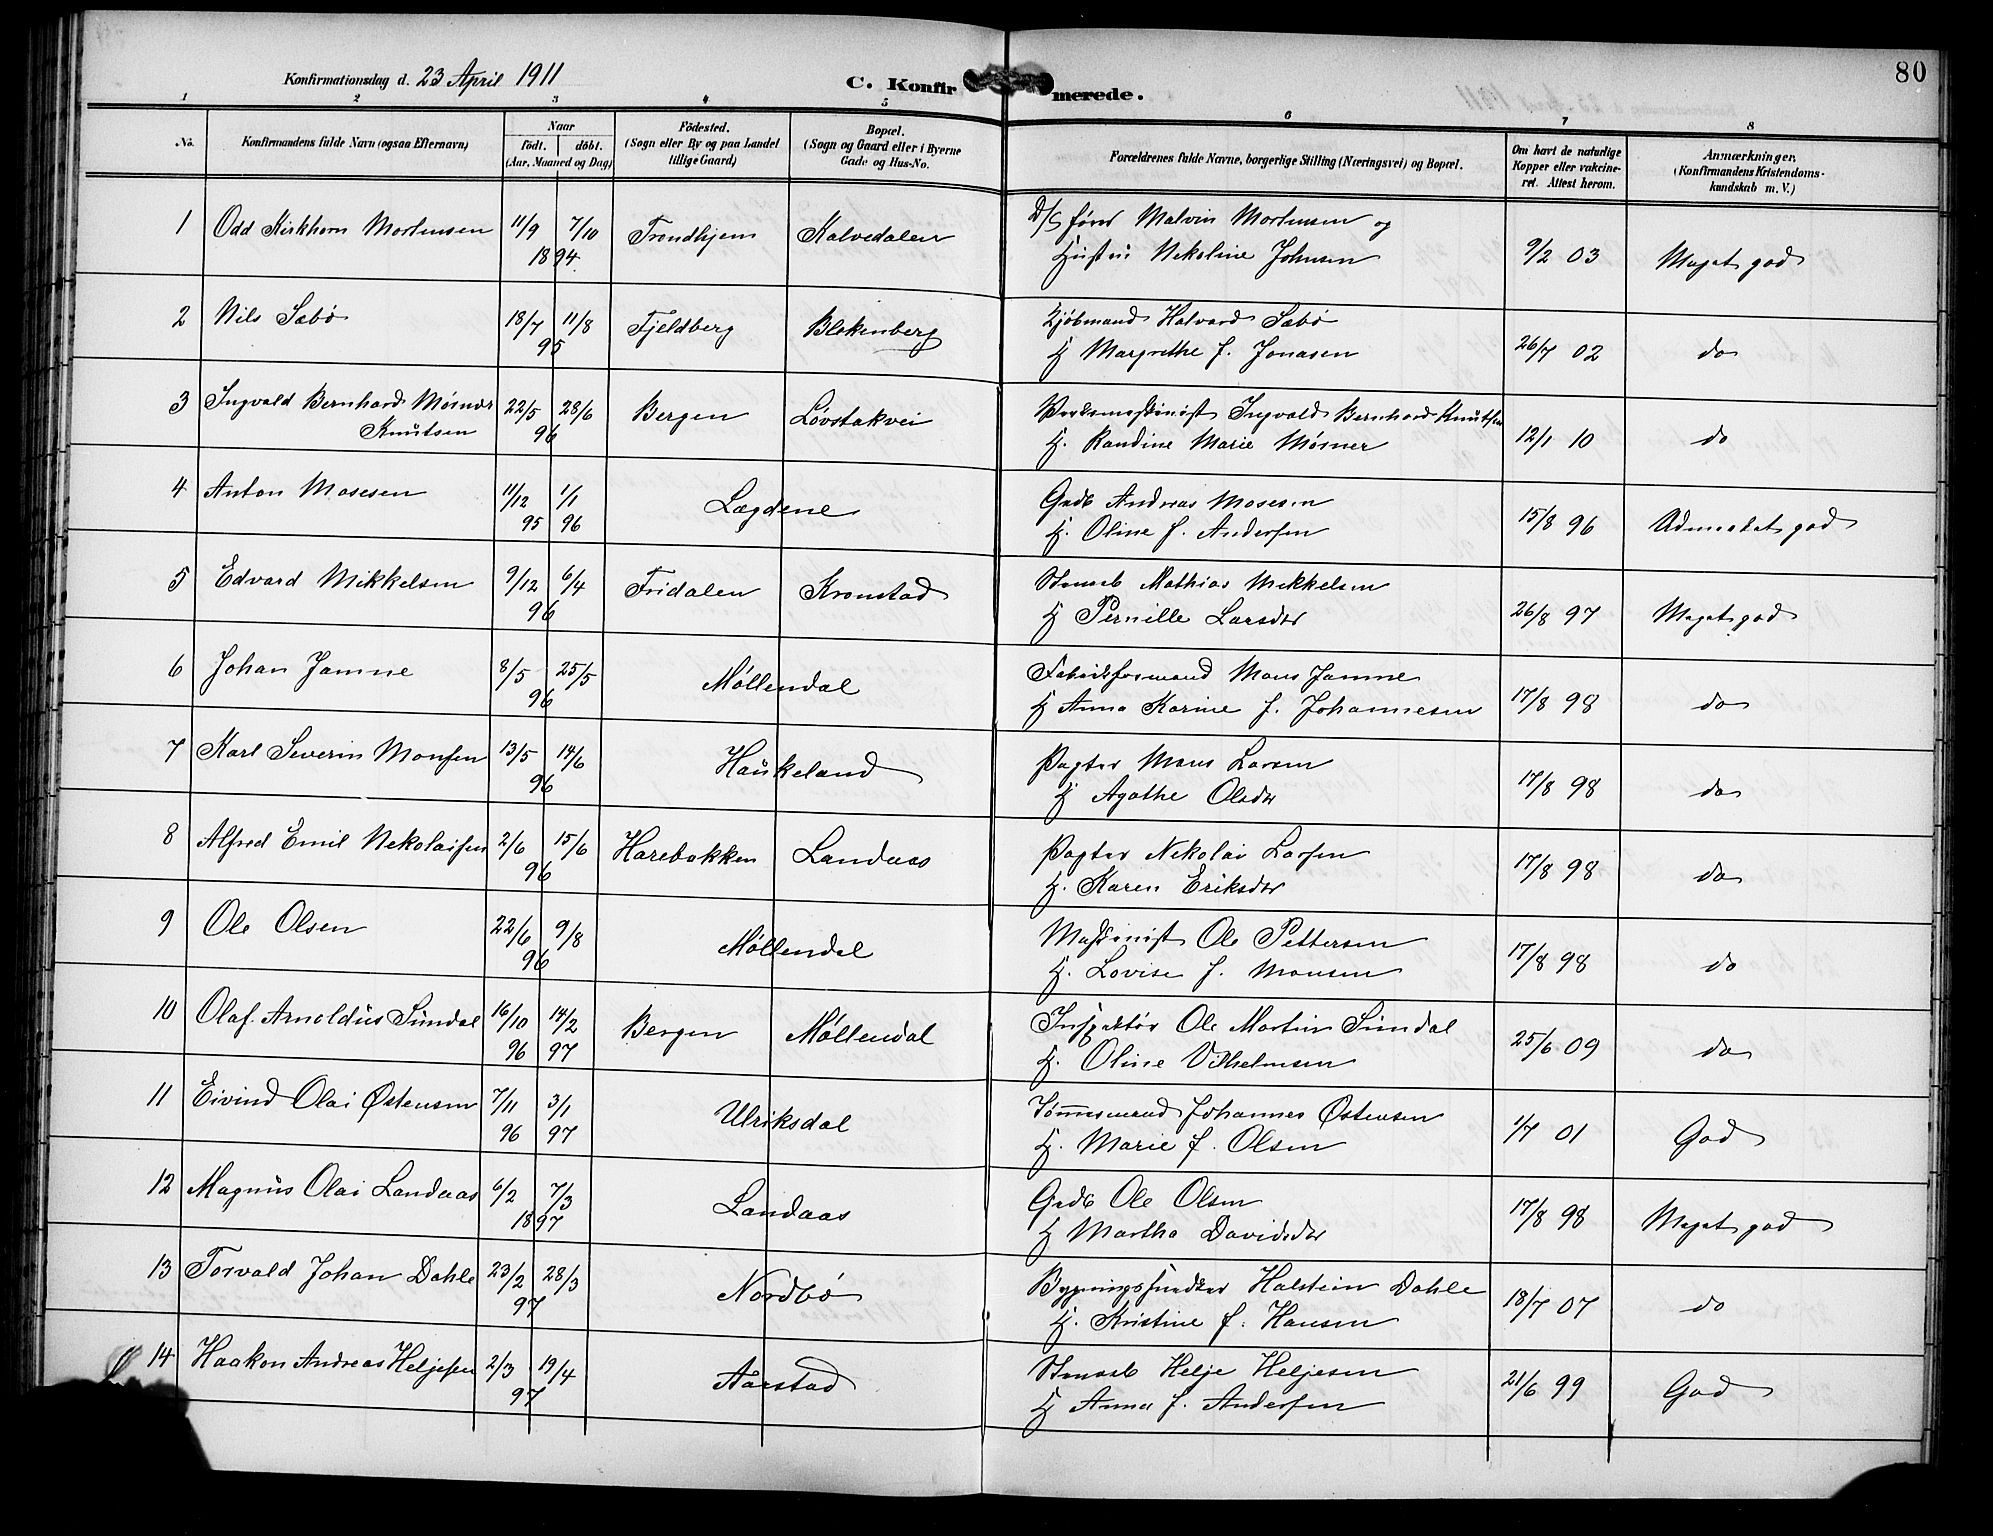 80
Konfirmationsdag d. 23 April 1911
C. Konfirmerede.
1 2 3 4 5 6 7 8
No.
Konfirmandens fulde Navn (ogsaa Efternavn)
Naar
født. døbt.
(Aar, Maaned og Dag)
Fødested.
(Sogn eller By og paa Landet
tillige Gaard)
Bopæl.
(Sogn og Gaard eller i Byerne
Gade og Hus-No.
Forældrenes fulde Navne, borgerlige Stilling (Næringsvei) og Bopæl.
Om havt de naturlige
Kopper eller vakcine-
ret. Attest herom.
Anmærkninger.
(Konfirmandens Kristendoms-
kundskab m. V.)
1 Odd Kirkhorn Mortensen 11/9 7/10 Trondhjem Kalvedalen D/S fører Malvin Mortensen og
1894 Hustru Nekoline Johnsen 9/2 03 Meget god
2 Nils Sæbø 18/7 11/8 Fjeldberg Blekenberg Kjøbmand Halvard Sæbø
95 H Margrethe f. Jonasen 26/7 02 do
3 Ingvald Bernhard Mørner 22/5 28/6 Bergen Løvstakvei Værksmaskinist Ingvald Bernhard Knutsen
Knutsen 96 H. Randine Marie Mørner 12/1 10 do
4 Anton Mosesen 11/12 1/1 Lægdene Grdb Andreas Mosesen
95 96 H. Oline f. Andersen 15/8 96 Udmerket god
5 Edvard Mikkelsen 9/12 6/4 Fridalen Kronstad Mathias Mikkelsen
96 H Pernille Larsdtr 26/8 97 Meget god
6 Johan Jamne 8/5 25/5 Møllendal Fabrikformand Mons Jamne
96 H Anna Karine f. Johannesen 17/8 98 do
7 Karl Severin Monsen 13/5 14/6 Haukeland Pagter Mons Larsen
96 H Agathe Olsdtr 17/8 98 do
8 Alfred Emil Nekolaisen 2/6 15/6 Harebakken Landaas Pagter Nekolai Larsen
96 H. Karen Eriksdtr 17/8 98 do
9 Ole Olsen 22/6 9/8 Møllendal Maskinist Ole Pettersen
96 H. Lovise f. Monsen 17/8 98 do
10 Olaf Arnoldus Sundal 16/10 14/2 Bergen Møllendal Inspektør Ole Martin Sundal
96 97 H. Oline Vilhelmsen 25/6 09 do
11 Eivind Olai Østensen 7/11 3/1 Ulriksdal Tømmermand Johannes Østensen
96 97 H. Marie f. Olsen 1/7 01 God
12 Magnus Olai Landaas 6/2 7/3 Landaas Grdb Ole Olsen
1897 H Martha Davidsdtr 17/8 98 Meget god
13 Torvald Johan Dahle 23/2 28/3 Nordbø Bygningssnedker Halstein Dahle
97 H. Kristine f. Hansen 18/7 07 do
14 Haakon Andreas Heljesen 2/3 19/4 Aarstad Helje Heljesen
97 H Anna f. Andersen 21/6 99 God